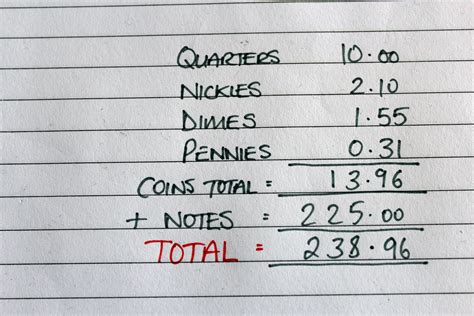 QUARTERS 10.00
NICKLES 2.10
DIMES 1.55
PENNIES 0.31
COINS TOTAL = 13.96
+ NOTES = 225.00
TOTAL = 238.96